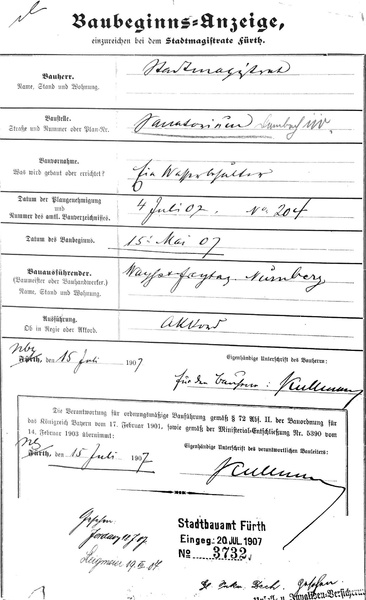 Baubeginns-Anzeige,
einzureichen bei dem Stadtmagistrate Fürth.
Bauherr.
Name, Stand und Wohnung.
Stadtmagistrat
Baustelle.
Straße und Nummer oder Plan-Nr.
Sanatorium
Bauvornahme.
Was wird gebaut oder errichtet?
Ein Wasserbehälter
Datum der Plangenehmigung
und
Nummer des amtl. Bauverzeichnisses.
4 Juli 07. No 204
Datum des Baubeginns.
15. Mai 07
Bauausführender.
(Baumeister oder Bauhandwerker.)
Name, Stand und Wohnung.
Wayss & Freytag Nürnberg
Ausführung.
Ob in Regie oder Akkord.
Akkord
Nbg
Fürth, den 15 Juli 1907
Eigenhändige Unterschrift des Bauherrn:
Für den Bauherrn: Kullmann
Die Verantwortung für ordnungsmäßige Bauführung gemäß § 72 Abs. II. der Bauordnung für
das Königreich Bayern vom 17. Februar 1901, sowie gemäß der Ministerial-Entschließung Nr. 5390 vom
14. Februar 1903 übernimmt:
Nbg
Fürth, den 15 Juli 1907
Eigenhändige Unterschrift des verantwortlichen Bauleiters:
Kullmann
Gesehen
Stadtbauamt Fürth
Eingeg: 20. JUL. 1907
No 3732
Gesehen